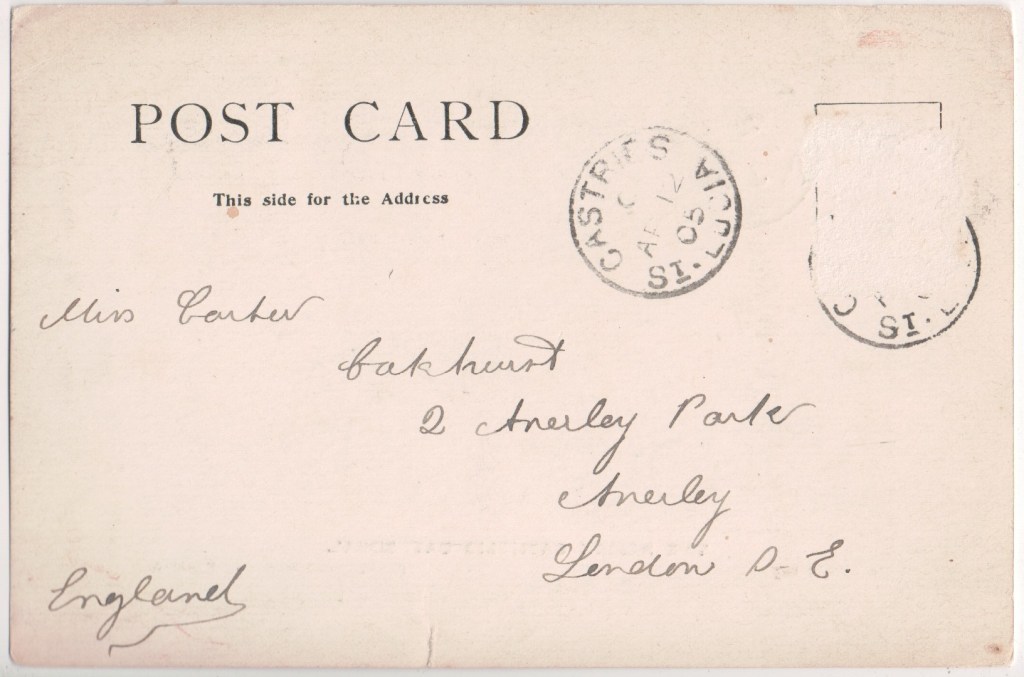 POST CARD
This side for the Address
CASTRIES ST. LUCIA
C
AP 12
05
C ST. L
Miss Carter
Oakhurst
2 Anerley Park
Anerley
London S. E.
England